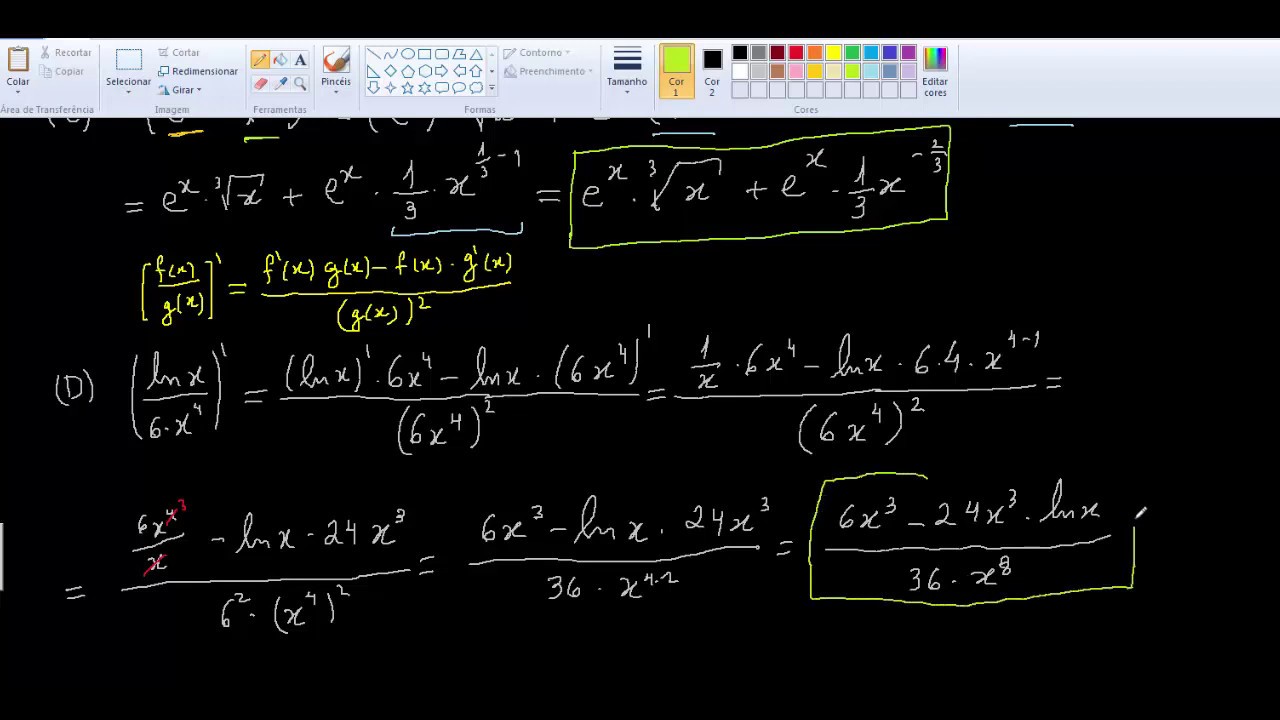 Recortar
Copiar
Colar
Área de Transferência
Selecionar
Cortar
Redimensionar
Girar
Imagem
A
Ferramentas
Pincéis
Contorno
Preenchimento
Formas
Tamanho
Cor 1
Cor 2
Editar cores
Cores
= eˣ · ∛x + eˣ · 1/3 · x^(1/3 - 1) = eˣ · ∛x + eˣ · 1/3 x^(-2/3)
[f(x)/g(x)]' = (f'(x) g(x) - f(x) · g'(x)) / (g(x))²
(D) (ln x / 6·x⁴)' = ((ln x)' · 6x⁴ - ln x · (6x⁴)') / (6x⁴)² = (1/x · 6x⁴ - ln x · 6·4·x^(4-1)) / (6x⁴)² =
= (6x⁴ ³/x - ln x · 24x³) / (6² · (x⁴)²) = (6x³ - ln x · 24x³) / (36 · x^(4·2)) = (6x³ - 24x³ · ln x) / (36 · x⁸)